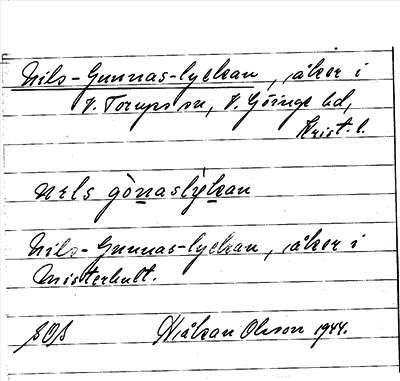 Nils-Gunnas-lyckan, åker i
V. Torups sn, V. Göinge hd,
Krist. l.
nels gònaslýkan
Nils-Gunnas-lyckan, åker i
Misterhult.
SOB Håkan Olsson 1944.